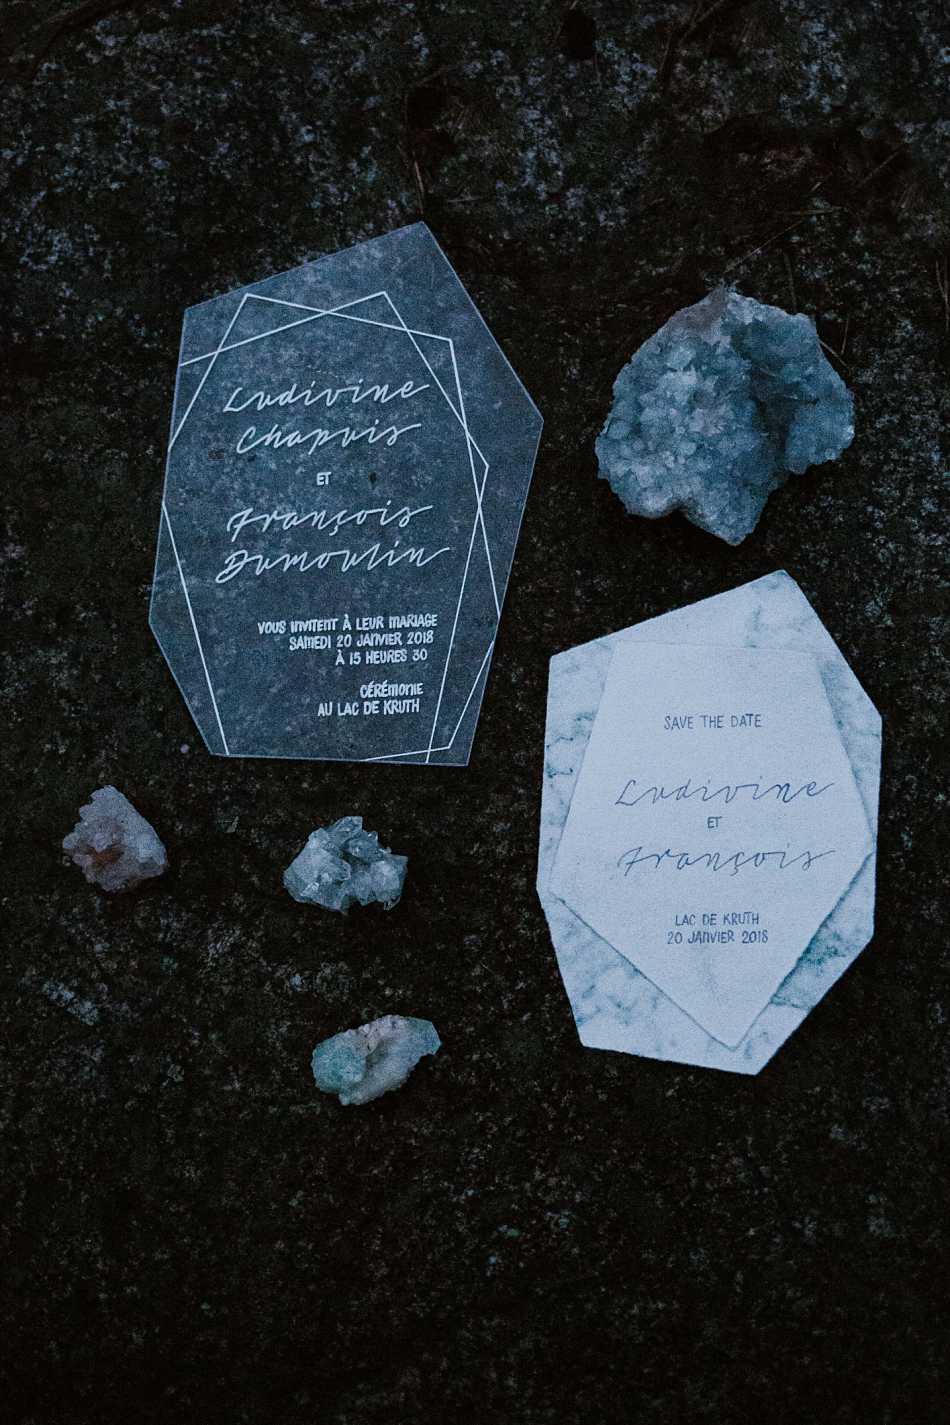 Ludivine
Chapuis
ET
François
Dumoulin
VOUS INVITENT À LEUR MARIAGE
SAMEDI 20 JANVIER 2018
À 15 HEURES 30
CÉRÉMONIE
AU LAC DE KRUTH
SAVE THE DATE
Ludivine
ET
François
LAC DE KRUTH
20 JANVIER 2018